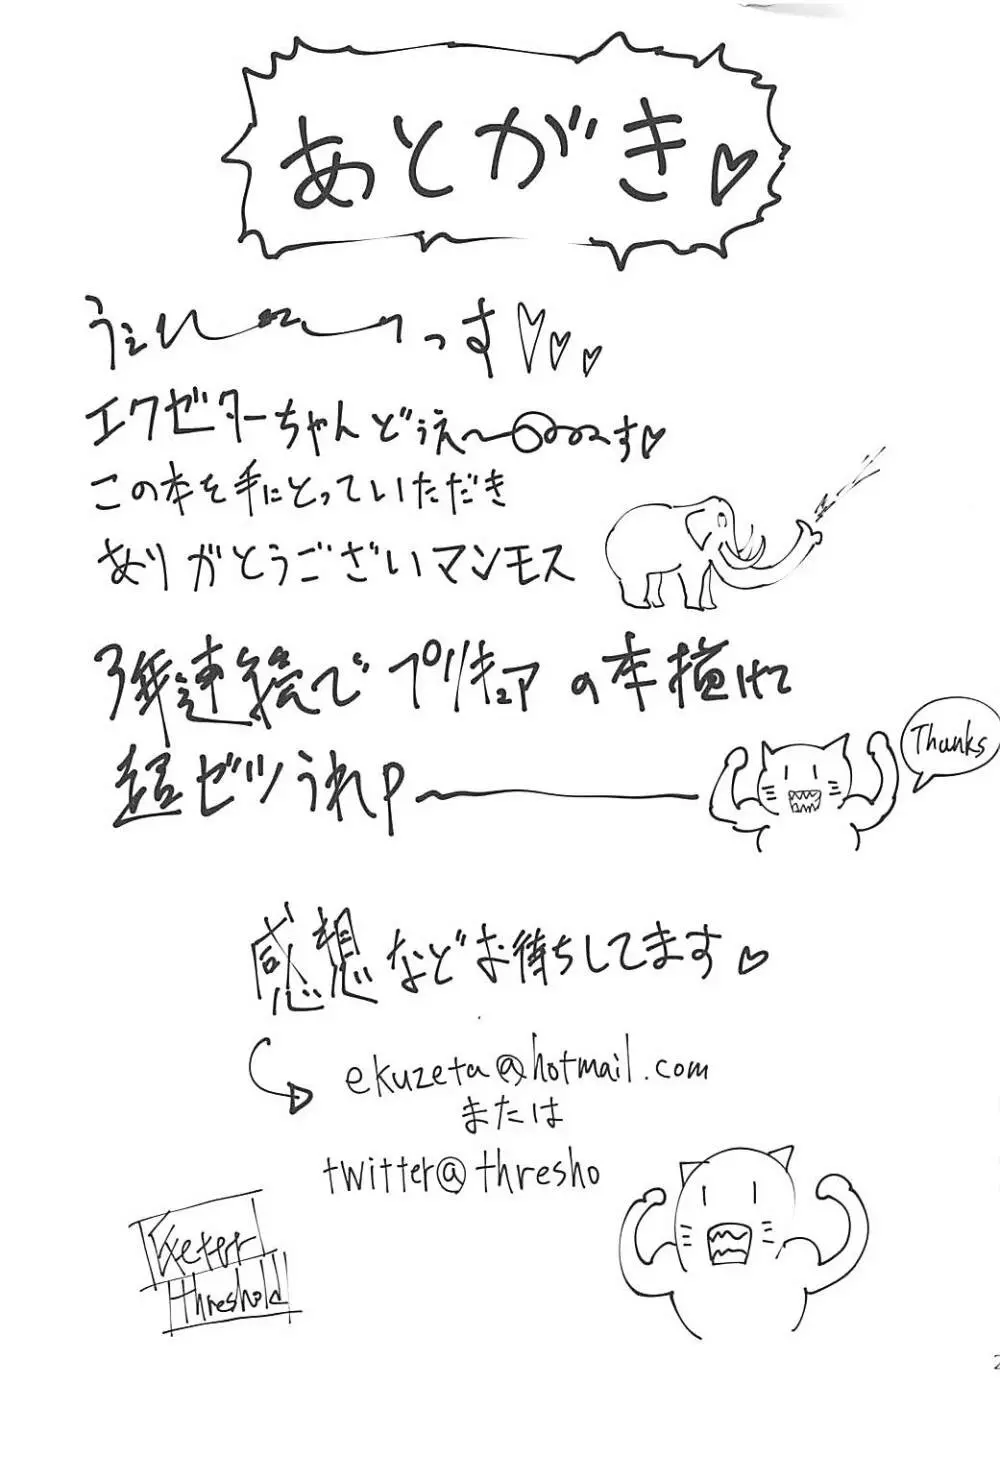 あとがき♡
うぇい〜〜っす♡♡♡
エクゼターちゃんどぅえ〜〜〜す♡
この本を手にとっていただき
ありがとうございマンモス
3年連続でプリキュアの本描けて
超ゼツうれP〜
Thanks
感想などお待ちしてます♡
ekuzeta@hotmail.com
または
twitter@thresho
Exeter
threshold
2